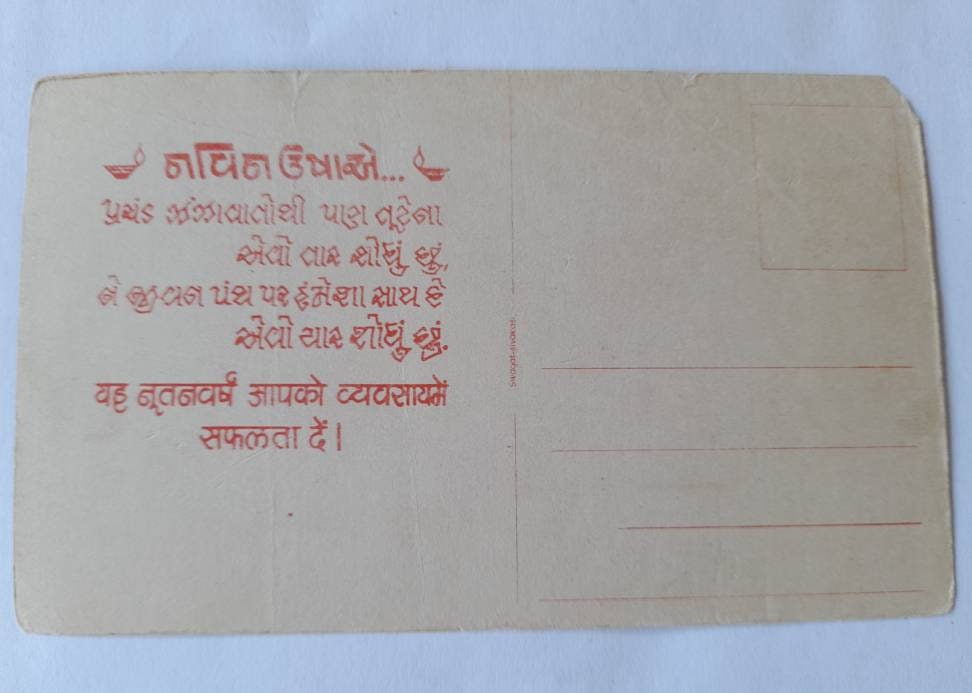 નવિન ઉષાએ...
પ્રચંડ ઝંઝાવાતોથી પણ તૂટેના
એવો તાર શોધું છું,
ને જીવન પંથ પર હંમેશા સાથ દે
એવો યાર શોધું છું.
यह नूतनवर्ष आपको व्यवसायमें
सफलता दें।
Swagat-sivakasi